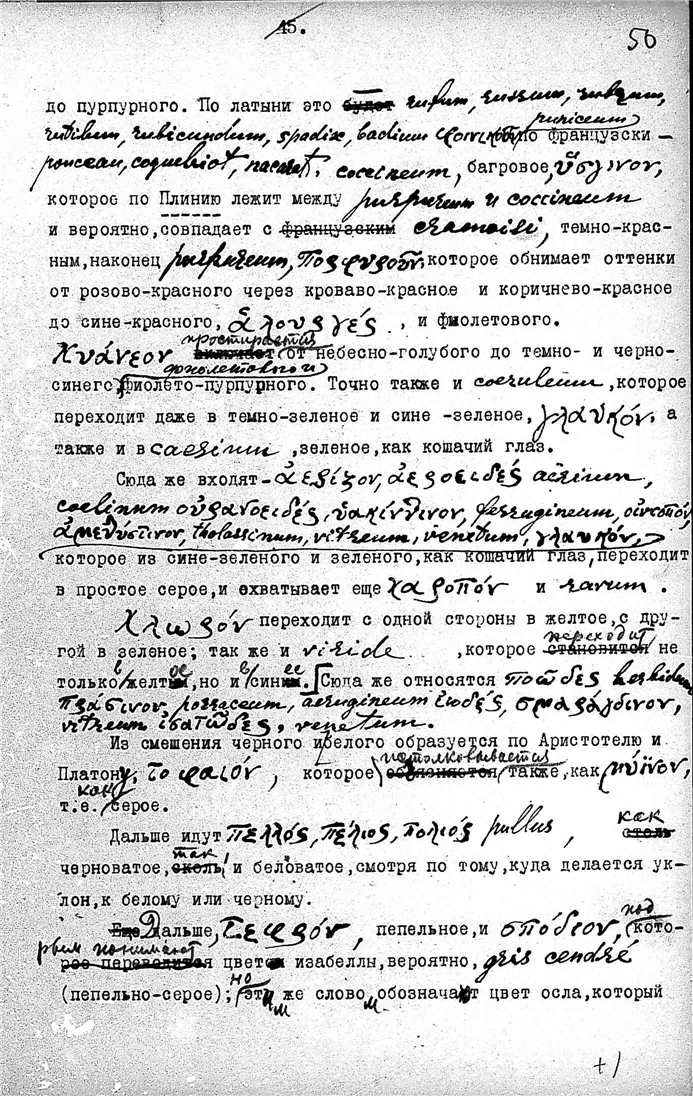 45.
50
до пурпурного. По латыни это будет rufum, russum, rubrum,
puniceum
rutilum, rubicundum, spadix, badium по французски –
ponceau, coquelicot, nacarat, coccineum, багровое, ὕσγινον,
которое по Плинию лежит между purpureum и coccineum
и вероятно, совпадает с французским cramoisi, темно-крас-
ным, наконец purpureum, πορφυροῦν, которое обнимает оттенки
от розово-красного через кроваво-красное и коричнево-красное
до сине-красного, ἁλουργές, и фиолетового.
простирается
Κυάνεον включает от небесно-голубого до темно- и черно-
фиолетового и
синего, фиолето-пурпурного. Точно также и coeruleum, которое
переходит даже в темно-зеленое и сине-зеленое, γλαυκόν, а
также и в caesium, зеленое, как кошачий глаз.
Сюда же входят – ἀερίζον, ἀεροειδές aërinum,
coelinum οὐρανοειδές, ὑακίνθινον, ferrugineum, οἰνωπόν,
ἀμεθύστινον, thalassinum, vitreum, venetum, γλαυκόν,
которое из сине-зеленого и зеленого, как кошачий глаз, переходит
в простое серое, и охватывает еще χαροπόν и ravum.
Χλωρόν переходит с одной стороны в желтое, с дру-
переходит
гой в зеленое; так же и viride, которое становится не
только в желтое, но и в синее. Сюда же относятся ποῶδες herbidum
πράσινον, porraceum, aerugineum ἰώδες, σμαράγδινον,
vitreum ἰσατῶδες, venetum.
Из смешения черного и белого образуется по Аристотелю и
истолковывается
Платону, τὸ φαιόν, которое об'ясняется также, как μύϊνον,
как
т.е. серое.
Дальше идут πελλός, πέλιος, πολιός pullus, как
столь
так
черноватое, сколь и беловатое, смотря по тому, куда делается ук-
лон, к белому или черному.
под
Еще Дальше, τεφρόν, пепельное, и σπόδιον, кото-
рым понимают
рое переводится цвет изабеллы, вероятно, gris cendré
но
(пепельно-серое); этим же словом обозначают цвет осла, который
+1